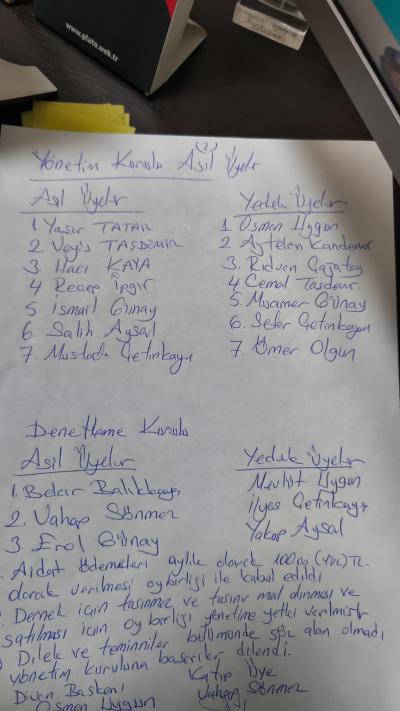 www.plato.web.tr
(2)
Yönetim Kurulu Asil Üyeler
Asil Üyeler
1 Yaşar TATAR
2 Veyis TAŞDEMİR
3. Hacı KAYA
4 Recep
5 İsmail Günay
6. Salih Aysal
7. Mustafa Çetinkaya
Yedek Üyeler
1 Osman Uygun
2 Aytekin Kandemir
3. Rıdvan Çağatay
4 Cemal Taşdemir
5. Muamer Günay
6. Sefer Çetinkaya
7. Ömer Olgun
Denetleme Kurulu
Asil Üyeler
1. Bekir Balıkkaya
2. Vahap Sönmez
3. Erol Günay
Yedek Üyeler
Mevlüt Uygun
İlyas Çetinkaya
Yakup Aysal
Aidat ödemeleri aylık olarak 100,00 (yüz) TL.
olarak verilmesi oybirliği ile kabul edildi
Dernek için taşınmaz ve taşınır mal alınması ve
satılması için oybirliği yönetime yetki verilmiştir
Dilek ve temenniler bölümünde söz alan olmadı
yönetim kuruluna başarılar dilendi.
Divan Başkanı
Osman Uygun
Katip Üye
Vahap Sönmez